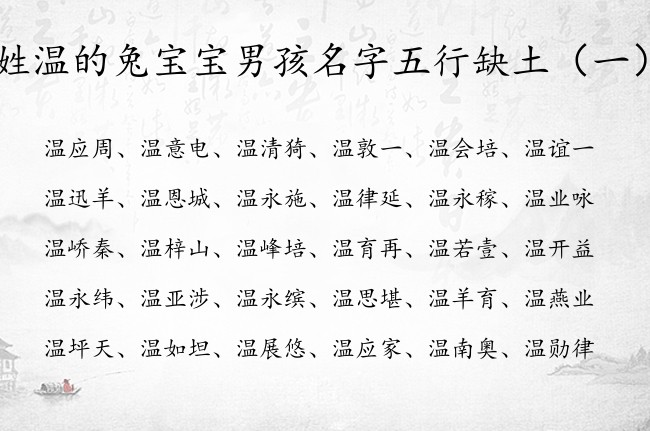 姓温的兔宝宝男孩名字五行缺土（一）
温应周、温意电、温清猗、温敦一、温会培、温谊一
温迅羊、温恩城、温永施、温律延、温永稼、温业咏
温峤秦、温梓山、温峰培、温育再、温若壹、温开益
温永纬、温亚涉、温永缤、温思堪、温羊育、温燕业
温坪天、温如坦、温展悠、温应家、温南奥、温勋律